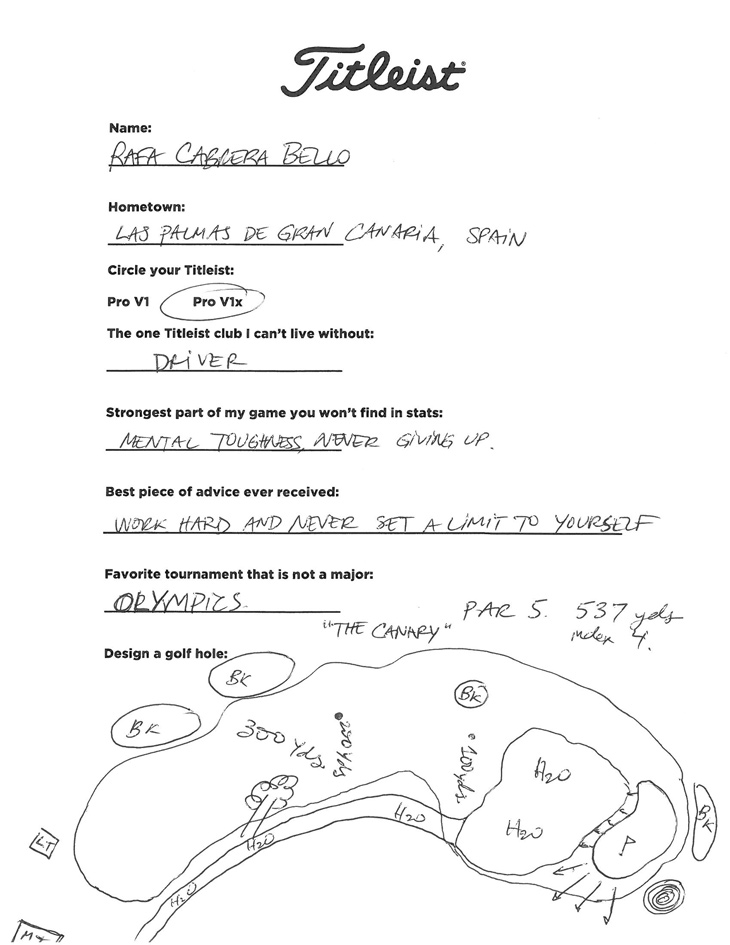 Titleist
Name:
RAFA CABRERA BELLO
Hometown:
LAS PALMAS DE GRAN CANARIA, SPAIN
Circle your Titleist:
Pro V1 Pro V1x
The one Titleist club I can't live without:
DRIVER
Strongest part of my game you won't find in stats:
MENTAL TOUGHNESS, NEVER GIVING UP.
Best piece of advice ever received:
WORK HARD AND NEVER SET A LIMIT TO YOURSELF
Favorite tournament that is not a major:
OLYMPICS
PAR 5. 537 yds
"THE CANARY"
index 4.
Design a golf hole:
BK
BK
BK
300 yds.
250 yds
100 yds.
H2O
H2O
H2O
H2O
H2O
BK
P
LT